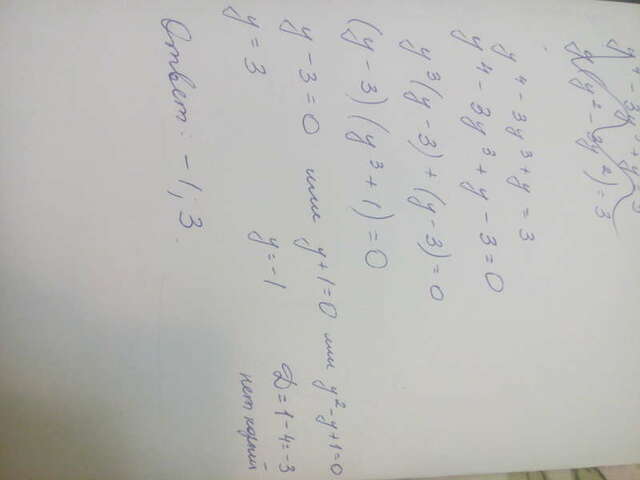 y⁴ - 3y³ + y = 3
y⁴ - 3y³ + y - 3 = 0
y³(y - 3) + (y - 3) = 0
(y - 3)(y³ + 1) = 0
y - 3 = 0 или y + 1 = 0 или y² - y + 1 = 0
y = 3 y = -1 D = 1 - 4 = -3
нет корней
Ответ: -1; 3.